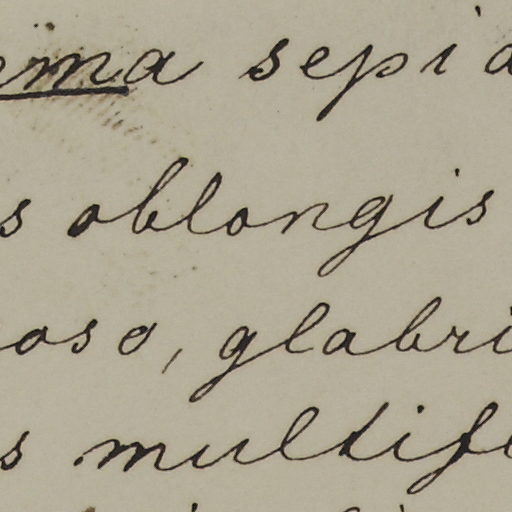 ma sepia
s oblongis
oso, glabri
s multif